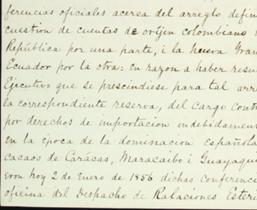 ferencias oficiales acerca del arreglo defin
cuestion de cuentas de orijen colombiano
República por una parte, i la Nueva Gran
Ecuador por la otra: en razon a haber resu
Ejecutivo que se prescindiese para tal arr
la correspondiente reserva, del cargo cont
por derechos de importacion indebidament
en la época de la dominacion Española
cacaos de Carácas, Maracaibo i Guayaqu
ron hoy 2 de Enero de 1856 dichas Conferenc
oficina del Despacho de Relaciones Esteri